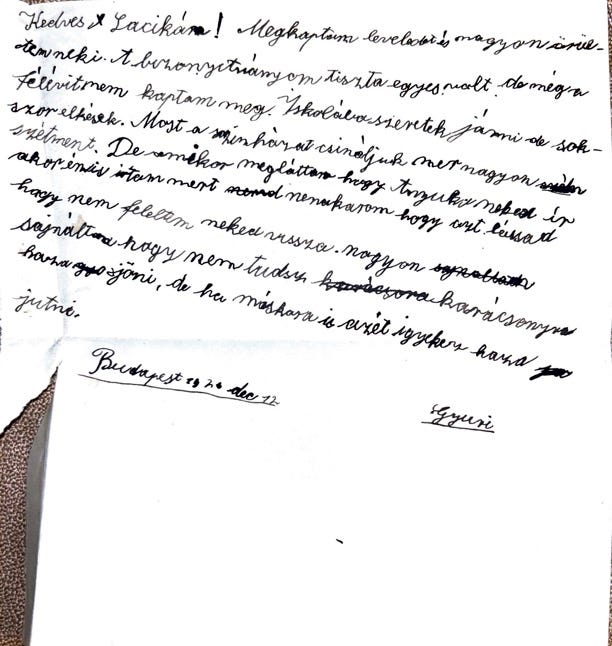 Kedves Lacikám! Megkaptam leveledet és nagyon örül-
tem neki. A bizonyitványom tiszta egyes volt de még a
félévit nem kaptam meg. Iskolába szeretek járni de sok-
szor elkések. Most a szinházat csináljuk mer nagyon
szétment. De amikor megláttam hogy Anyuka neked ir
akor én is irtam mert nem akarom hogy azt lássad
hogy nem feleltem neked vissza. nagyon
sajnáltam hogy nem tudsz karácsonyra
haza jöni, de ha máskora is azét igyekez haza
jutni.
Budapest 192 dec 12
Gyuri